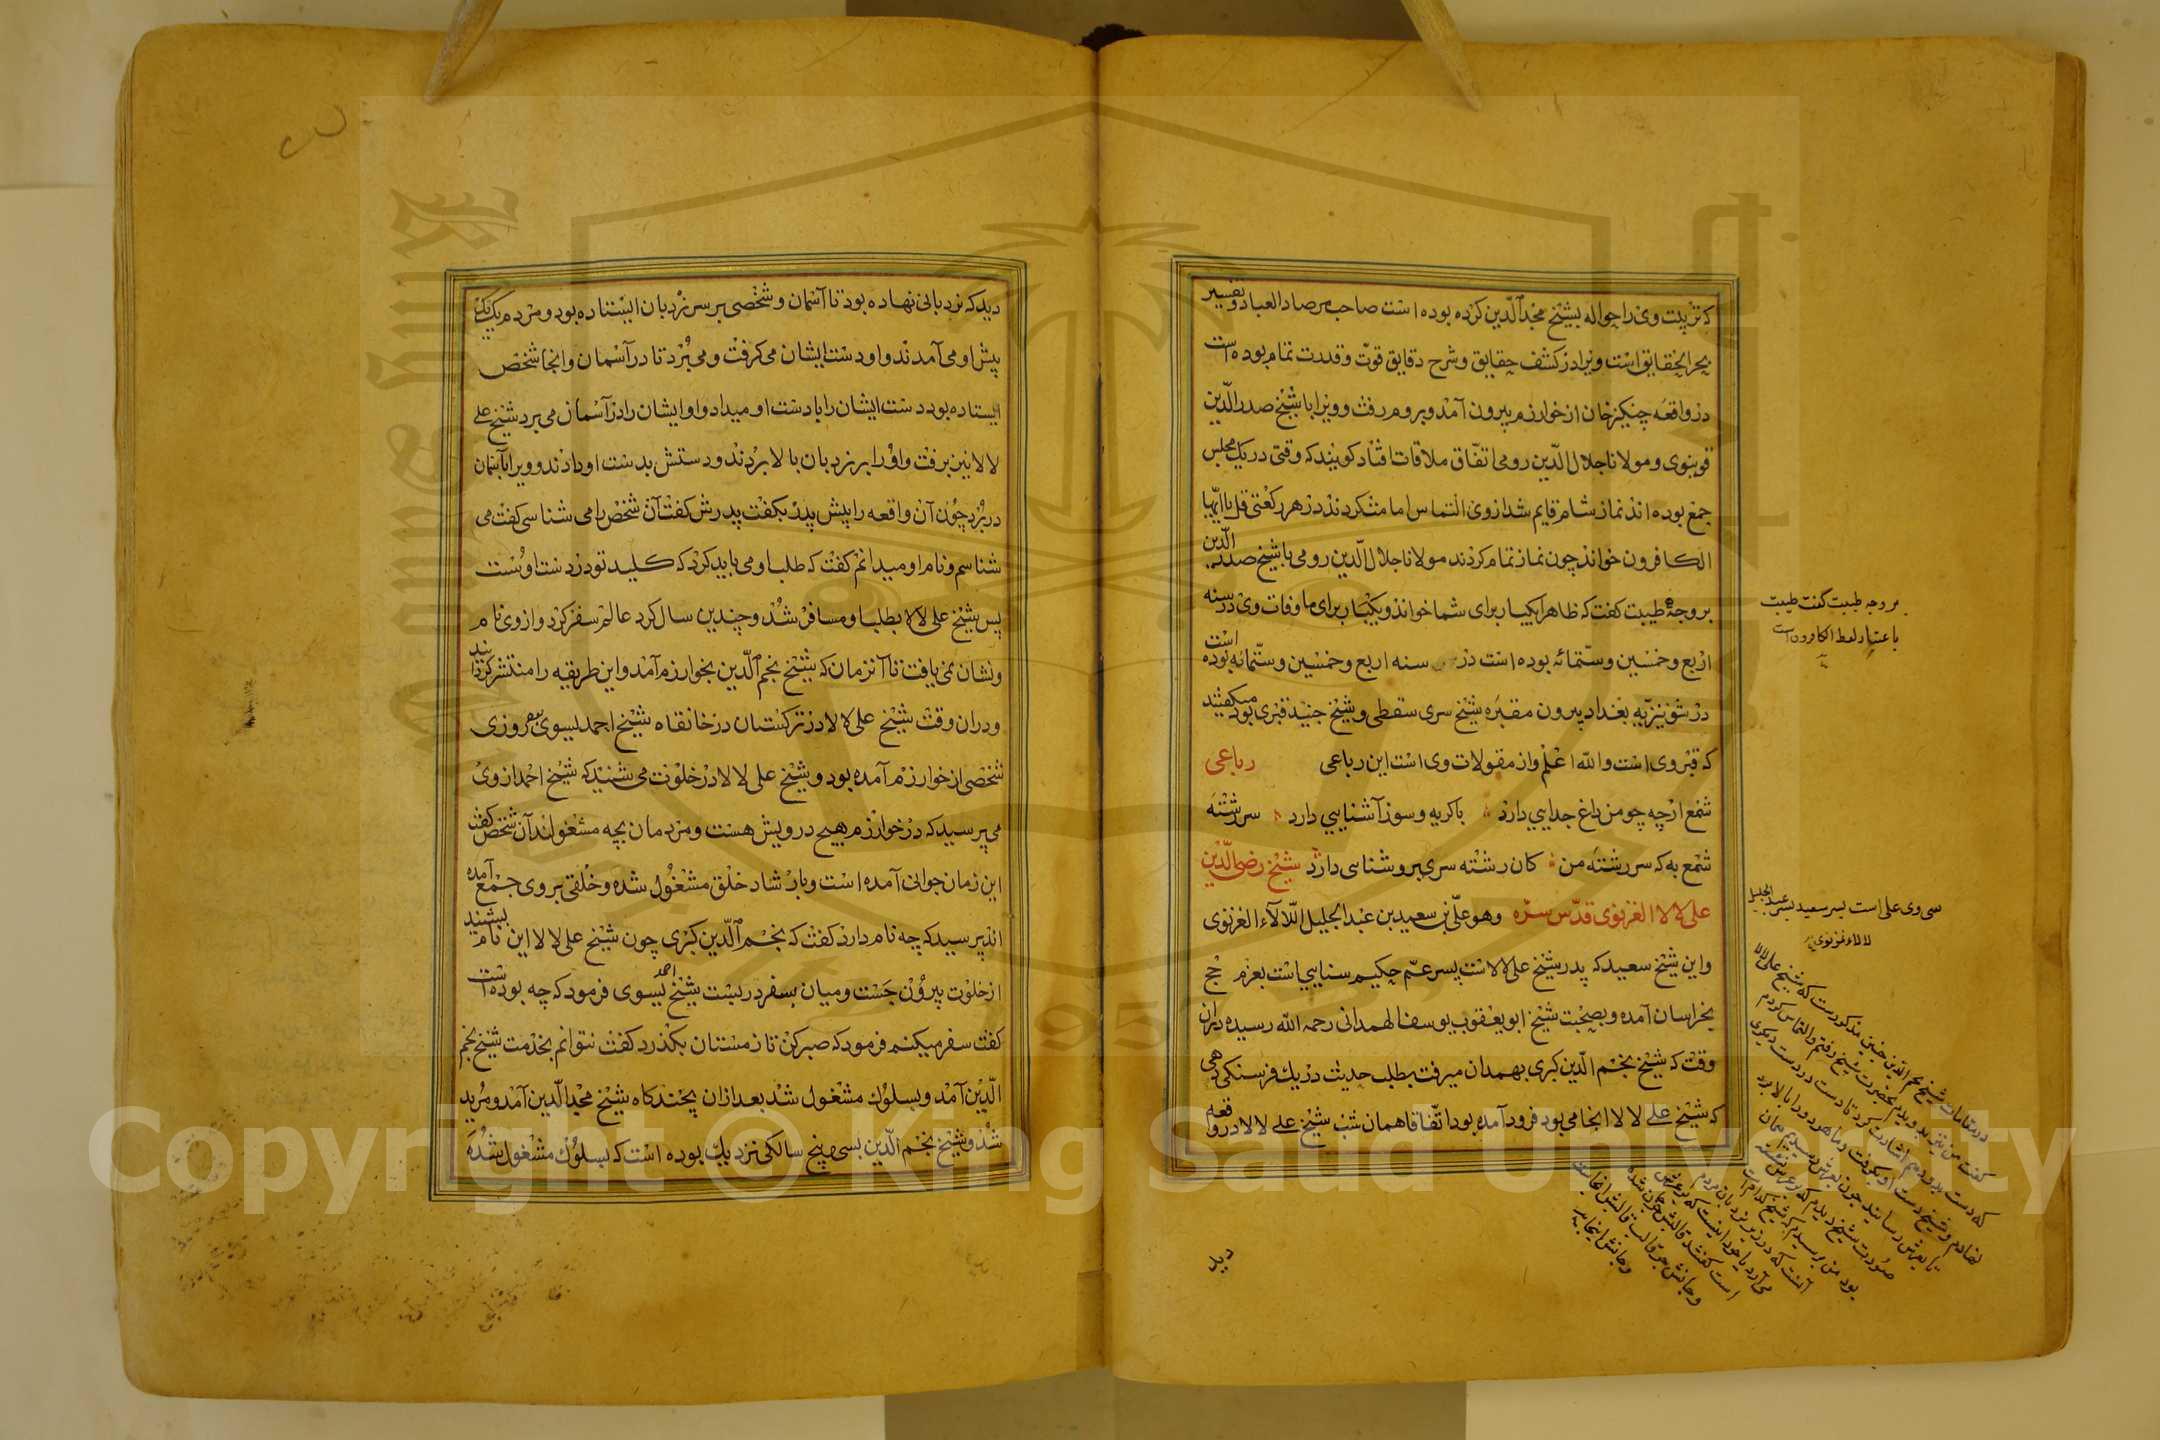 که تربیت وی را حواله بشیخ مجد الدین کرده بوده است صاحب مرصاد العباد و تفسیر
بحر الحقایق است و ویرا در کشف حقایق و شرح دقایق قوت و قدرت تمام بوده است
در واقعه چنکیز خان از خوارزم بیرون آمد و بروم رفت و ویرا با شیخ صدر الدین
قونیوی و مولانا جلال الدین رومی اتفاق ملاقات افتاد کویند که وقتی در یک مجلس
جمع بوده اند نماز شام قایم شد از وی التماس امامت کردند در هر رکعتی قل یا ایها
الکافرون خواند چون نماز تمام کردند مولانا جلال الدین رومی با شیخ صدر الدین
بر وجه طیبت کفت که ظاهرا یکبار برای شما خواند و یکبار برای ما وفات وی در سنه
اربع و خمسین و ستمائه بوده است در سنه اربع و خمسین و ستمائه بوده است
در شونیزیه بغداد بیرون مقبره شیخ سری سقطی و شیخ جنید قبری بود میکفتند
که قبر وی است والله اعلم و از مقولات وی است این رباعی رباعی
شمع ارچه چو من داغ جدایی دارد با کریه و سوز آشنایی دارد سر رشته
شمع به که سر رشته من کان رشته سری بروشنایی دارد شیخ رضی الدین
علی لالا الغزنوی قدس سره وهو علی بن سعید بن عبد الجلیل اللالاء الغزنوی
و این شیخ سعید که پدر شیخ علی لالاست پسر عم حکیم سنایی است بعزم حج
بخراسان آمده و بصحبت شیخ ابو یعقوب یوسف الهمدانی رحمه الله رسیده در آن
وقت که شیخ نجم الدین کبری بهمدان میرفت بطلب حدیث در یک فرسنکی دهی
که شیخ علی لالا انجا می بود فرود آمده بود اتفاقا همان شب شیخ علی لالا در واقعه
بر وجه طیبت گفت طیبت
باعتبار لفظ الکافرون است
سی وی علی است پسر سعید پسر عبد الجلیل
لالاء غزنوی
در مقامات شیخ نجم الدین چنین مذکورست که شیخ علی لالا
دید
دید که نردبانی نهاده بود تا آسمان و شخصی بر سر نردبان ایستاده بود و مردم یک یک
پیش او می آمدند و او دست ایشان می کرفت و می برد تا در آسمان و انجا شخص
ایستاده بود دست ایشان را با دست او میداد و او ایشان را در آسمان می برد شیخ علی
لالا نیز برفت و او را بر نردبان بالا بردند و دستش بدست او دادند و ویرا بآسمان
در برد چون آن واقعه را پیش پدر بکفت پدرش کفت آن شخص را می شناسی کفت می
شناسم و نام او میدانم کفت که طلب او می باید کرد که کلید تو در دست اوست
پس شیخ علی لالا بطلب او مسافر شد و چندین سال کرد عالم سفر کرد و از وی نام
و نشان نمی یافت تا آنزمان که شیخ نجم الدین بخوارزم آمد و این طریقه را منتشر کردانید
و در ان وقت شیخ علی لالا در ترکستان در خانقاه شیخ احمد یسوی بود روزی
شخصی از خوارزم آمده بود و شیخ علی لالا در خلوت می شنید که شیخ احمد از وی
می پرسید که در خوارزم هیچ درویش هست و مردمان بچه مشغول اند آن شخص کفت
این زمان جوانی آمده است و بارشاد خلق مشغول شده و خلقی بروی جمع آمده
اند پرسید که چه نام دارد کفت که نجم الدین کبری چون شیخ علی لالا این نام بشنید
از خلوت بیرون جست و میان بسفر در بست شیخ احمد یسوی فرمود که چه بوده است
کفت سفر میکنم فرمود که صبر کن تا زمستان بکذرد کفت نتوانم بخدمت شیخ نجم
الدین آمد و بسلوک مشغول شد بعد از ان بچندکاه شیخ مجد الدین آمد و مرید
شد و شیخ نجم الدین بسی و پنج سالکی نزدیک بوده است که بسلوک مشغول شده
Copyright © King Saud University
King Saud University
1957